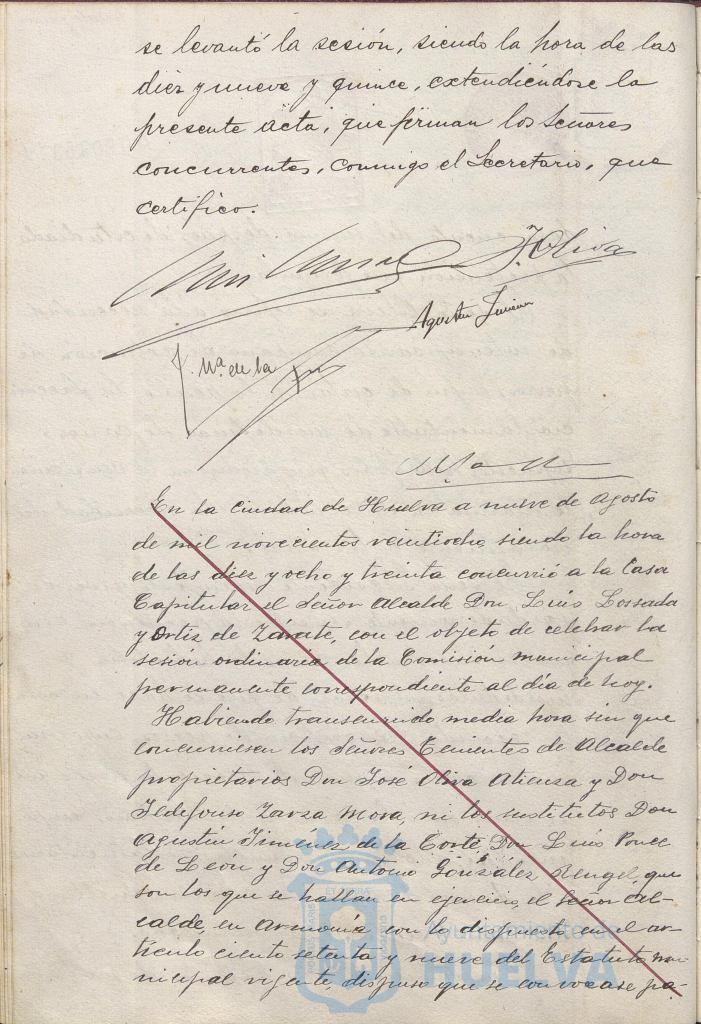 se levantó la sesión, siendo la hora de las
diez y nueve y quince, extendiéndose la
presente acta, que firman los Señores
concurrentes, conmigo el Secretario, que
certifico.
J. Oliva
Agustín
J. Mª. de la
En la Ciudad de Huelva a nueve de Agosto
de mil novecientos veintiocho, siendo la hora
de las diez y ocho y treinta concurrió a la Casa
Capitular el Señor Alcalde Don Luis Lossada
y Ortiz de Zárate, con el objeto de celebrar la
sesión ordinaria de la Comisión municipal
permanente correspondiente al día de hoy.
Habiendo transcurrido media hora sin que
concurriesen los Señores Tenientes de Alcalde
propietarios Don José Oliva Atienza y Don
Ildefonso Zarza Mora, ni los sustitutos Don
Agustín Jiménez de la Corte, Don Luis Ponce
de León y Don Antonio González Rengel, que
son los que se hallan en ejercicio, el Señor Al-
calde, en armonía con lo dispuesto en el ar-
tículo ciento setenta y nueve del Estatuto mu-
nicipal vigente, dispuso que se convocase pa-
Ayuntamiento de
HUELVA